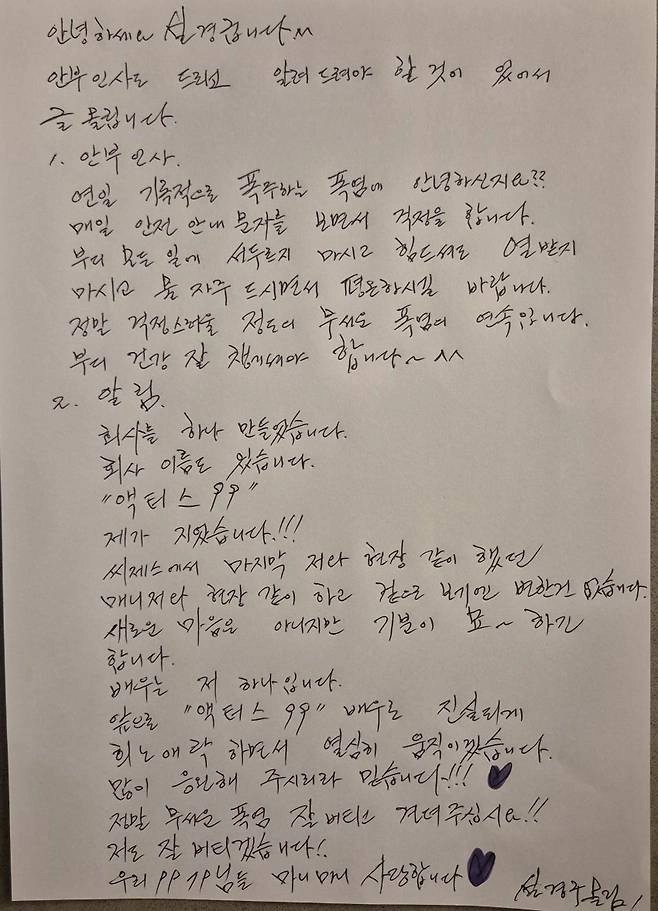 안녕하세요 설경굽니다^^
안부인사도 드리고 알려드려야 할 것이 있어서
글 올립니다.
1. 안부인사.
연일 기록적으로 폭주하는 폭염에 안녕하신지요??
매일 안전 안내 문자를 보면서 걱정을 합니다.
부디 모든 일에 서두르지 마시고 힘드셔도 열받지
마시고 물 자주 드시면서 평온하시길 바랍니다.
정말 걱정스러울 정도의 무서운 폭염의 연속입니다.
부디 건강 잘 챙기셔야 합니다~ ^^
2. 알림.
회사를 하나 만들었습니다.
회사 이름도 있습니다.
"액터스99"
제가 지었습니다.!!!
씨제스에서 마지막 저와 현장 같이 했던
매니저와 현장 같이 하고 겉으로 보기엔 변한건 없습니다.
새로운 마음은 아니지만 기분이 묘~ 하긴
합니다.
배우는 저 하나입니다.
앞으로 "액터스99" 배우로 진실되게
희노애락 하면서 열심히 움직이겠습니다.
많이 응원해 주시리라 믿습니다.!!!
정말 무서운 폭염 잘 버티고 견뎌주십시요!!
저도 잘 버티겠습니다!.
우리 님들 마니마니 사랑합니다
설경구올림.